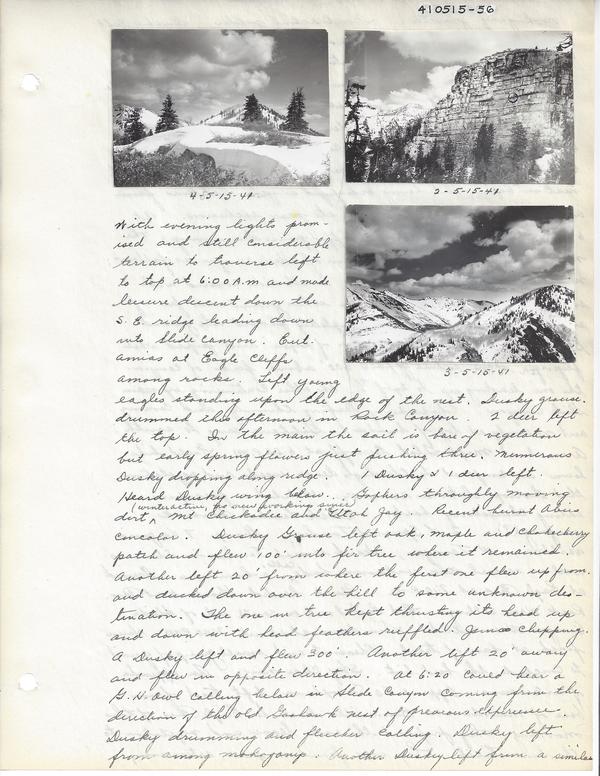 410515-56
4-5-15-41
2-5-15-41
3-5-15-41
With evening lights prom-
ised and still considerable
terrain to traverse left
to top at 6:00 A.M and made
leisure descent down the
S.E. ridge leading down
into Slide Canyon. Eut.
amias at Eagle Cliffs
among rocks. Left young
eagles standing upon the edge of the nest. Dusky grouse
drummed this afternoon in Rock Canyon. 2 deer left
the top. In the main the soil is bare of vegetation
but early spring flowers just pushing thru. Numerous
Dusky dropping along ridge. 1 Dusky & 1 deer left.
Heard Dusky wing below. Gophers throughly moving
(winteractive, no new working since)
dirt ^ Mt Chickadee and Utah Jay. Recent burnt Abies
concolor. Dusky Grouse left oak, maple and chokecherry
patch and flew 100' into fir tree where it remained.
Another left 20' from where the first one flew up from
and ducked down over the hill to some unknown des-
tination. The one in tree kept thrusting its head up
and down with head feathers ruffled. Junco chipping.
A Dusky left and flew 300'. Another left 20' away
and flew in opposite direction. At 6:20 could hear a
G.H. Owl calling below in Slide Canyon coming from the
direction of the old Goshawk nest of previous experience.
Dusky drumming and flicker calling. Dusky left
from among mahogany. Another Dusky left from a similar